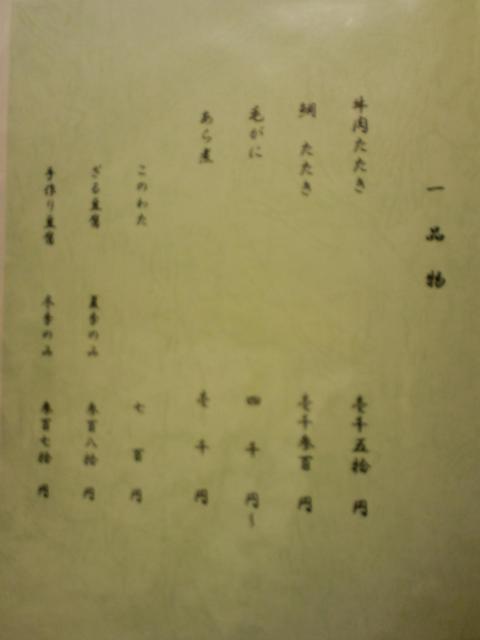 一品物
牛肉たたき 壱千五拾円
鯛たたき 壱千参百円
毛がに 四千円~
あら煮 壱千円
このわた 七百円
ざる豆腐 夏季のみ 参百八拾円
手作り豆腐 冬季のみ 参百七拾円